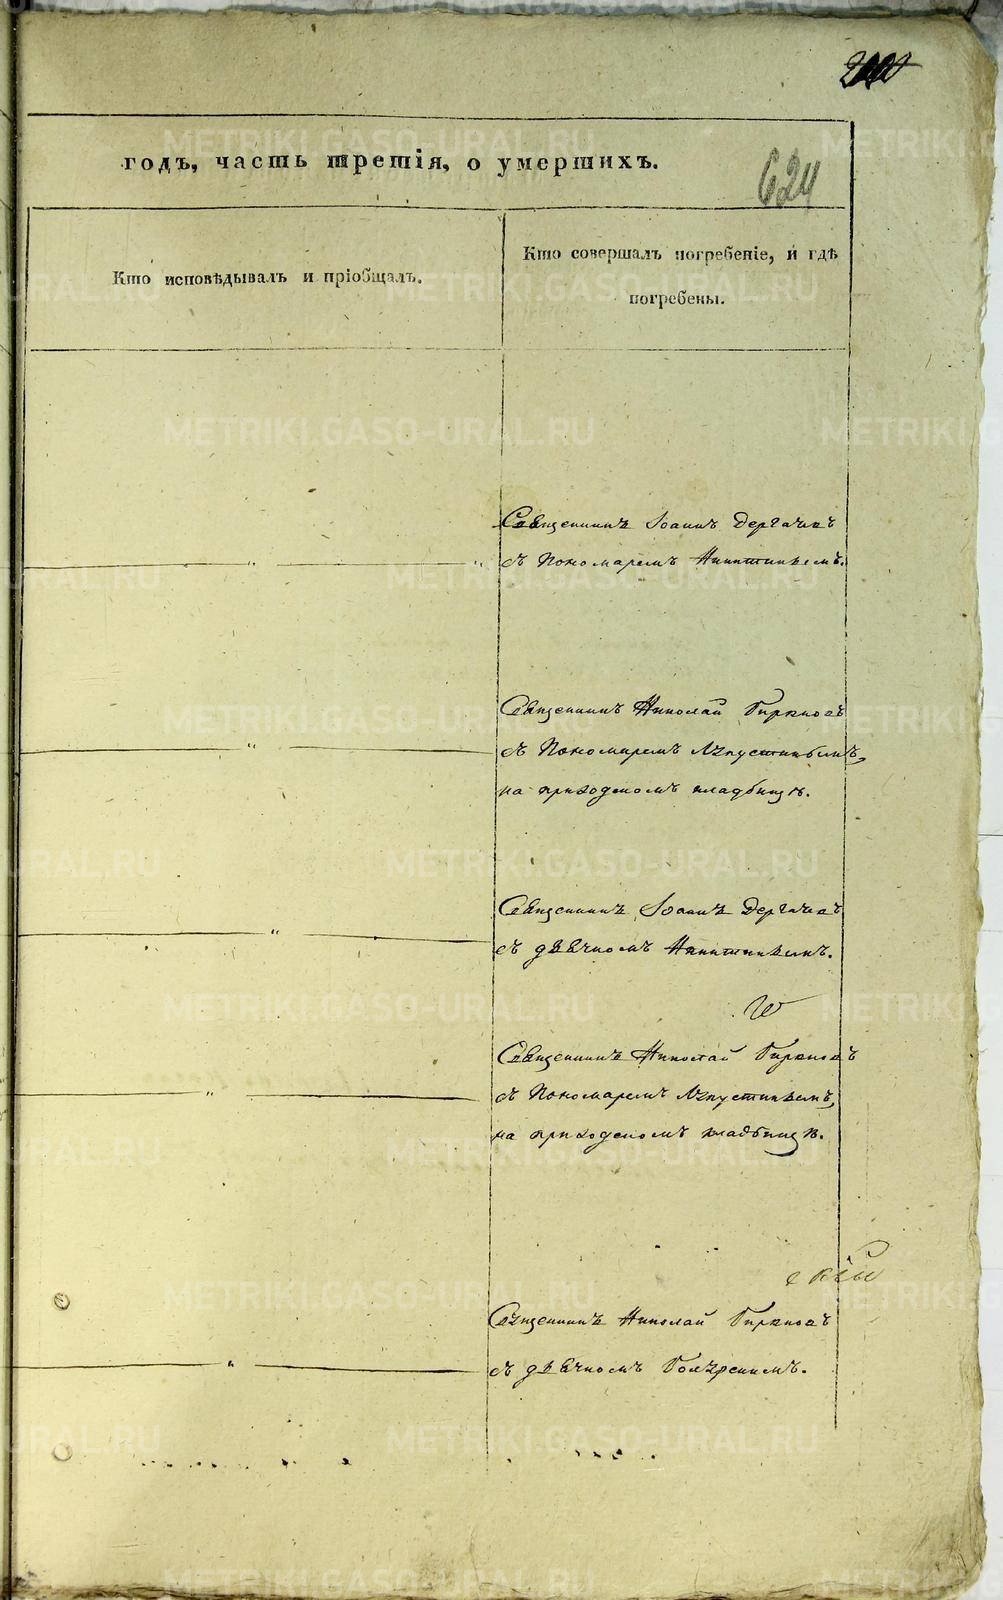 годъ, часть третія, о умершихъ.
624
Кто исповѣдывалъ и пріобщалъ.
Кто совершалъ погребеніе, и гдѣ
погребены.
Священникъ Іоаннъ Дергачевъ
съ Пономаремъ Никитинымъ.
Священникъ Николай
съ Пономаремъ
на приходскомъ кладбищѣ.
Священникъ Іоаннъ Дергачевъ
съ дьячкомъ Никитинымъ.
Священникъ Николай
съ Пономаремъ
на приходскомъ кладбищѣ.
Священникъ Николай
съ дьячкомъ
METRIKI.GASO-URAL.RU